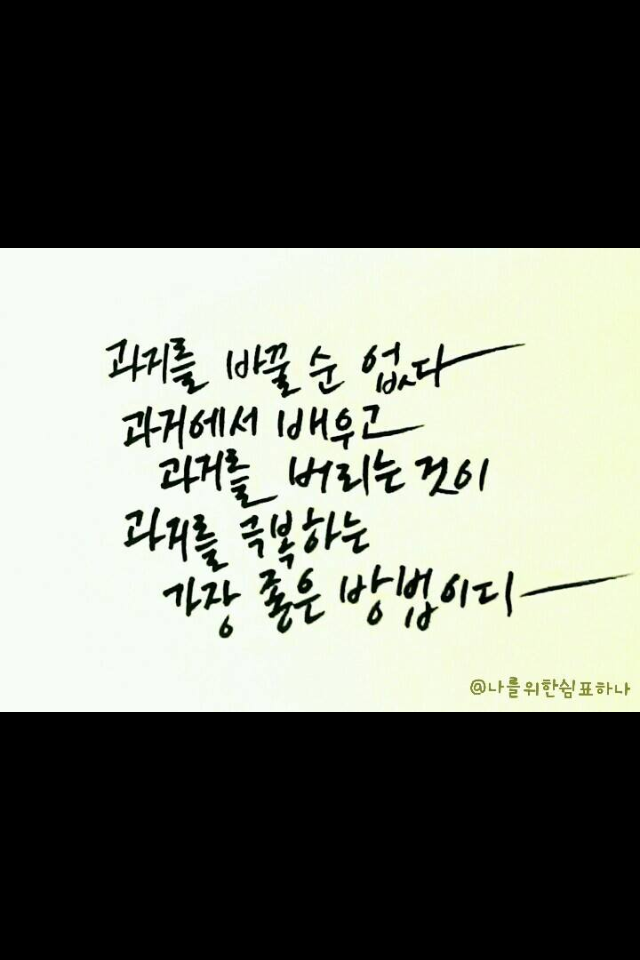 과거를 바꿀 순 없다
과거에서 배우고
과거를 버리는 것이
과거를 극복하는
가장 좋은 방법이다
@나를위한쉼표하나